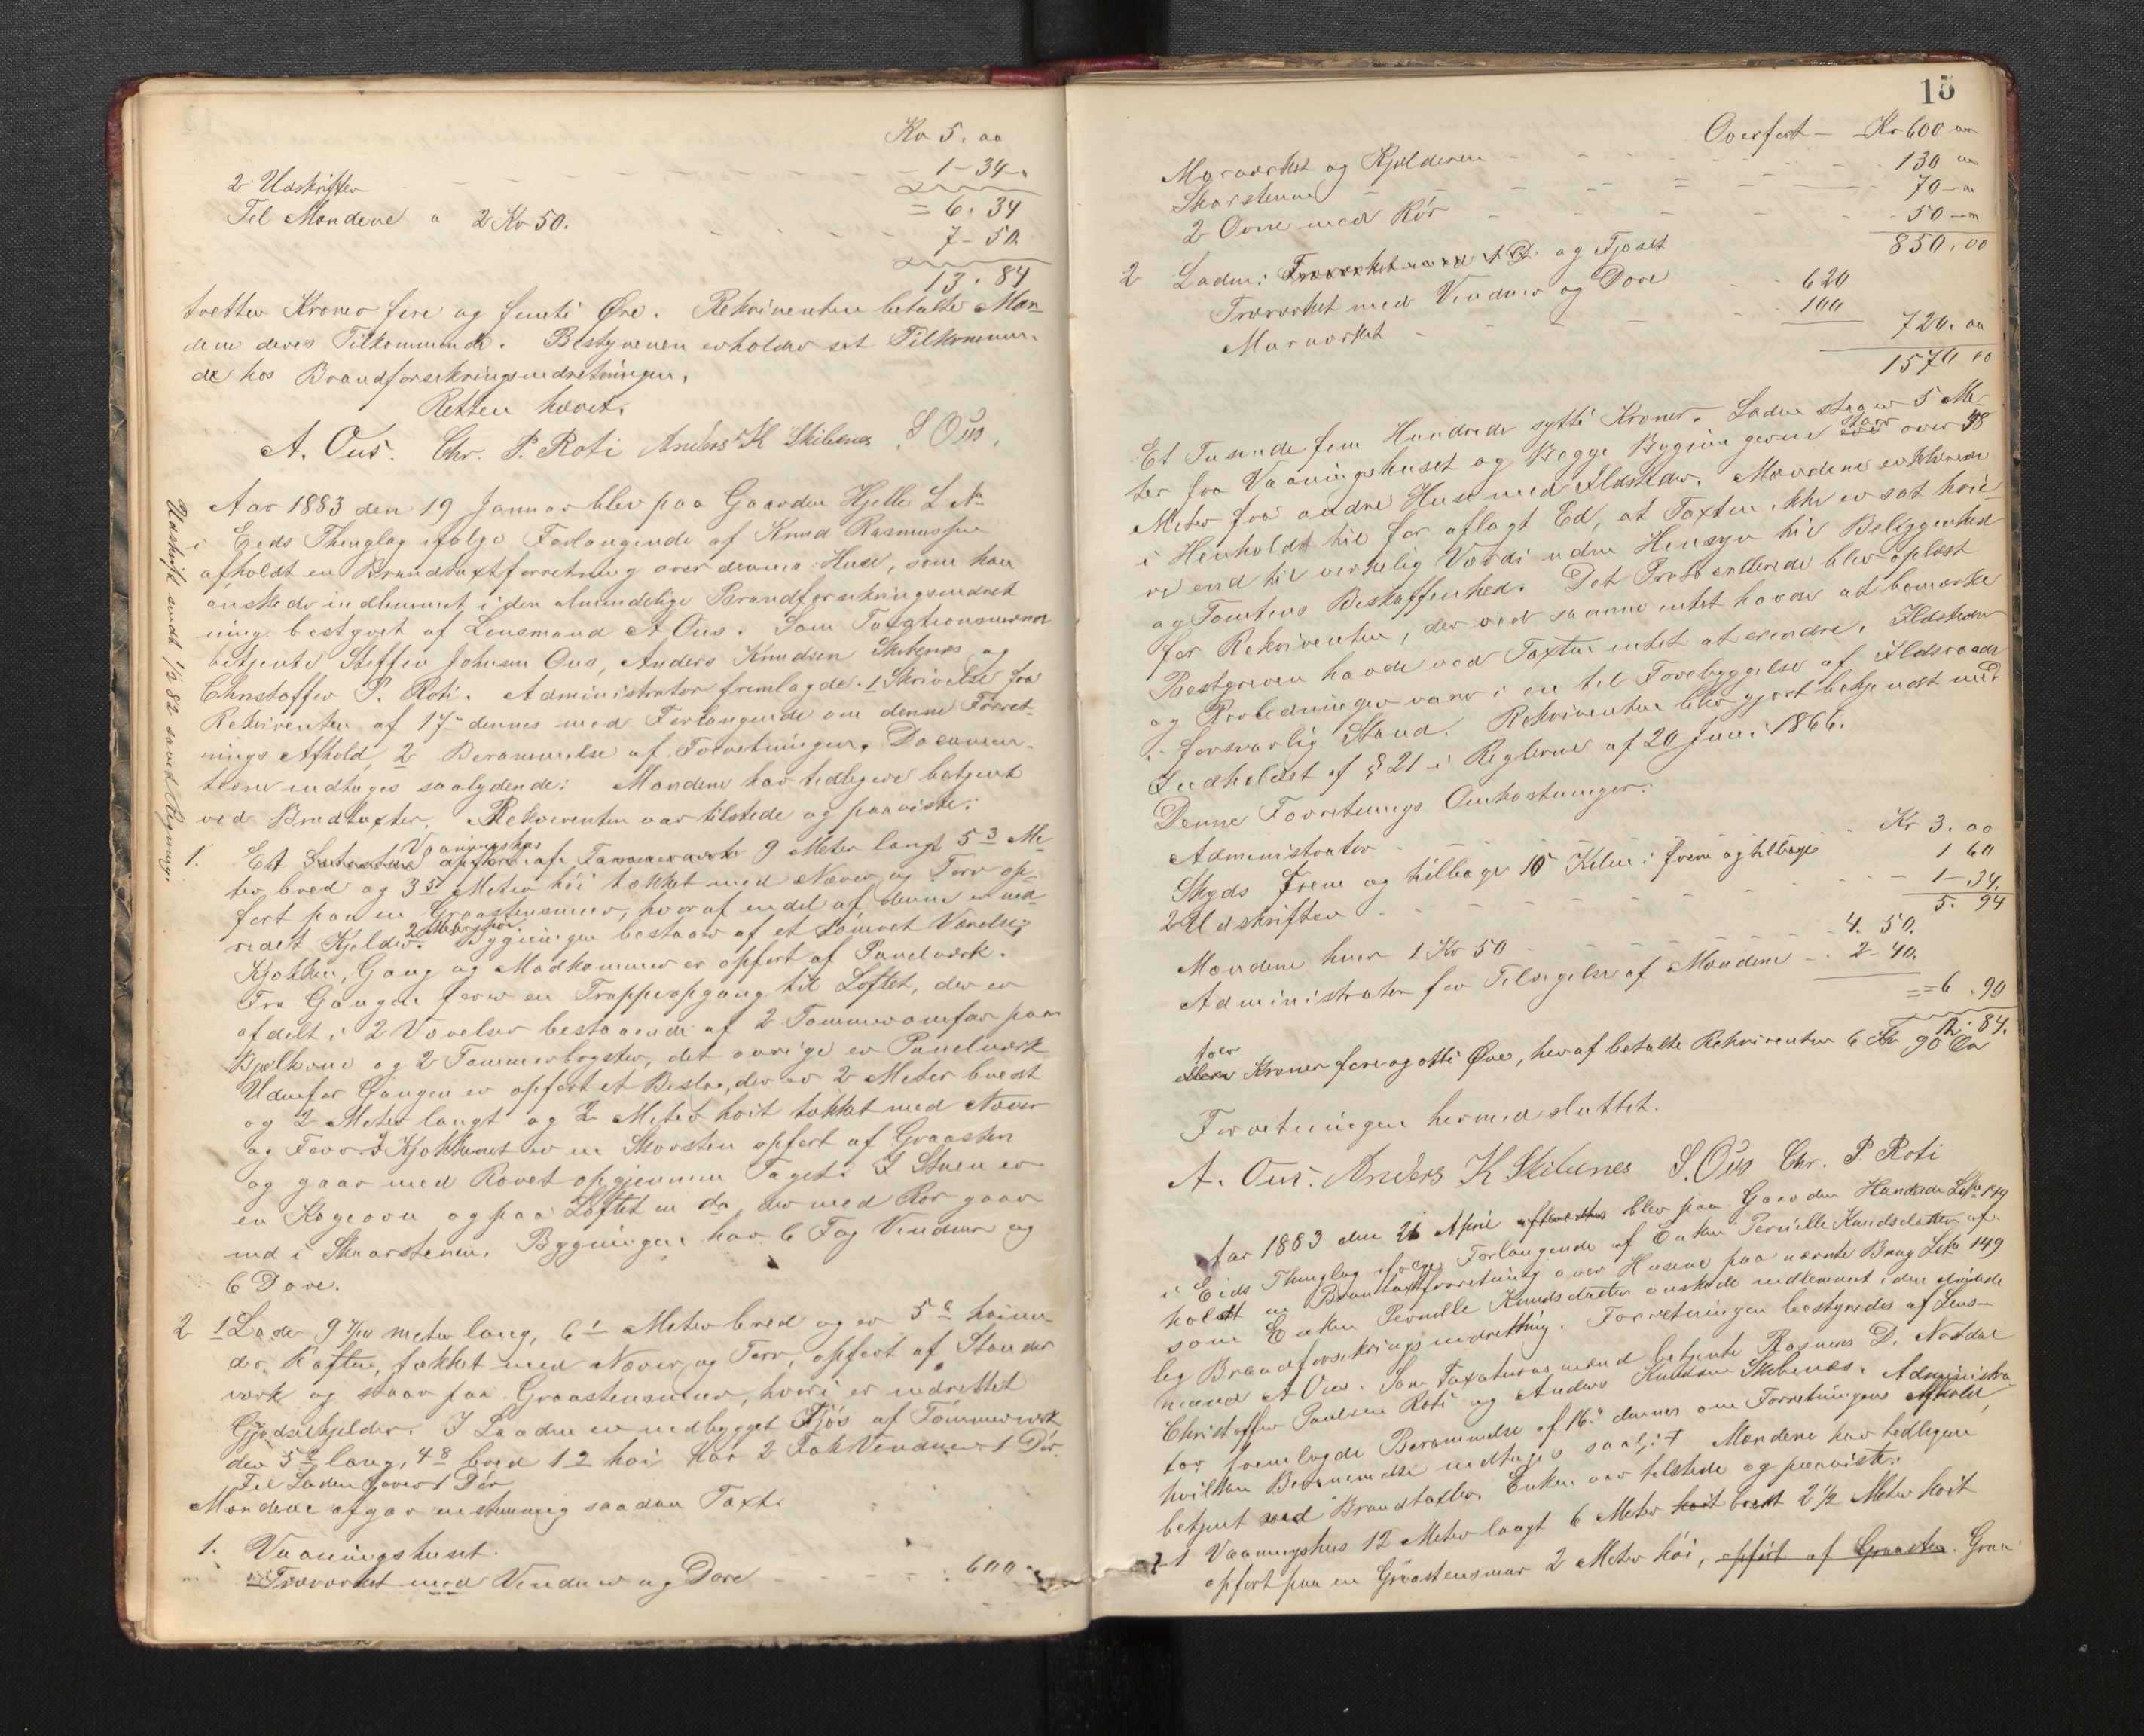 Kr 5. 00
2 Udskrifter 1-34
= 6. 34
Til Mændene a 2 Kr 50. 7-50
13. 84
tretten Kroner fire og fireti Øre. Rekvirenten betalte Mæn-
dene deres Tilkommende. Bestyreren erholder sit Tilkommen-
de hos Brandforsikringsindretningen.
Retten hævet.
A. Ous. Chr. P. Roti Anders K Skibenes S Ous.
Udskrift sendt 1/2 82 samt Regning
Aar 1883 den 19 Januar blev paa Gaarden Hjelle L. No
i Eids Thinglag ifølge Forlangende af Knud Rasmussen
afholdt en Brandtaxtforretning over dennes Huse, som han
ønskede indlemmet i den almindelige Brandforsikringsindret
ning bestyret af Lensmand A Ous. Som Taxationsmænd
betjente Steffen Johnsen Ous, Anders Knudsen Skibenes og
Christoffer P. Roti. Administrator fremlagde. 1 Skrivelse fra
Rekvirenten af 17de dennes med Forlangende om denne Forret-
nings Afhold, 2 Berammelse af Forretningen. Documen-
terne indtages saalydende: Mændene har tidligere betjent
ved Brandtaxter. Rekvirenten var tilstede og paaviste:
1. Et Vaaningshus 9 Meter langt 5 3 Me
ter bred og 3 5 Meter høi tækket med Næver og Torv op-
ført paa en Graastensmur, hvoraf en del af denne er ind-
redet Kjelder. 2 Meter høi Bygningen bestaar af et tømret Værelse,
Kjøkken, Gang og Madkammer er opført af Panelværk.
Fra Gangen fører en Trappeopgang til Loftet, der er
afdelt i 2 Værelser bestaaende af 2 Tømmeromfar paa
Bjelkerne og 2 Tømmerbryster, det øvrige er Panelværk
Udenfor Gangen er opført et Bislag, der er 2 Meter bredt
og 2 Meter langt og 2 Meter høit tækket med Næver
og Torv I Kjøkkenet er en Skorsten opført af Graasten
og gaar med Røret opgjennem Taget. I Stuen er
en Kogeovn og paa Loftet en do, der med Rør gaar
ind i Skorstenen. Bygningen har 6 Fag Vinduer og
6 Døre.
2 1 Lade 9 7/10 meter lang, 6 1 Meter bred og er 5 høi un-
der Raften, tækket med Næver og Torv, opført af Stander
værk og staar paa Graastensmur, hvori er indrettet
Gjødselkjelder. I Laaden er indbygget Fjøs af Tømmerværk
der 5 2 lang, 4 8 bred 1 9 høi har 2 Fak Vinduer 1 Dør.
Til Laden fører 1 Dør
Mændene afgav enstemmig saadan Taxt:
1. Vaaningshuset.
Træværket med Vinduer og Døre - - - - 600

15
Overført - Kr 600 00
Murværket og Kjelderen - - - - 130 00
Skorstenen - - - - 70-00
2 Ovne med Rør - - - - 50-00
850. 00
2 Laden: og Fjøset
Træværket med Vinduer og Døre 620
Murværket - - - 100
720. 00
1570 00
Et Tusinde fem Hundrede sytti Kroner. Laden staaer 5 Me-
ter fra Vaaningshuset og Begge Bygningerne staar over 38
Meter fra andre Huse med Ildsteder. Mændene erklærede
i Henholdt til før aflagt Ed, at Taxten ikke er sat høie-
re end til virkelig Værdi uden Hensyn til Beliggenhed
og Tomtens Beskaffenhed. Det Protokollerede blev oplæst
for Rekvirenten, der ved samme intet havde at bemærke
Bestyreren havde ved Taxten intet at erindre. Ildsteder
og Rørledninger vare i en til Forebyggelse af Ildsvaade
i forsvarlig Stand. Rekvirenten blev gjort bekjendt med
Indholdet af § 21 i Reglerne af 20 Juni 1866.
Denne Forretnings Omkostninger:
Administrator - - - - Kr 3. 00
Skyds frem og tilbage 10 Kilm: frem og tilbage 1 60
2 Udskrifter - - - - 1-34.
5. 94
Mændene hver 1 Kr 50 - - - - 4. 50.
Administrator for Tilsigelse af Mændene - 2-40.
= 6. 90
12. 84.
tolv Kroner fire og otti Øre, heraf betalte Rekvirenten 6 Kr 90 Øre
Forretningen hermed sluttet.
A. Ous. Anders K Skibenes S. Ous Chr. P. Roti
Aar 1883 den 21 April afholdtes blev paa Gaarden Hundeide L No 149
i Eids Thinglag ifølge Forlangende af Enken Pernille Knudsdatter af-
holdt en Brantaxtforretning over Husene paa nævnte Brug L No 149
som Enken Pernille Knudsdatter ønskede indlemmet i den almindel
leg Brandforsikringsindretning. Forretningen bestyredes af Lens-
mand A Ous. Som Taxationsmænd betjente Rasmus D. Nordal
Christoffer Paulsen Roti og Anders Knudsen Skibenes. Administra
tor fremlagde Berammelse af 16de dennes om Forretningens Afhold,
hvilken Berammelse indtages saal: Mændene har tidligere
betjent ved Brandtaxter. Enken var tilstede og paaviste:
1 Vaaningshus 12 Meter langt 6 Meter høit bredt 2 1/2 Meter høit
opført paa en Graastensmur 2 Meter høi, opført af Graasten. Graa